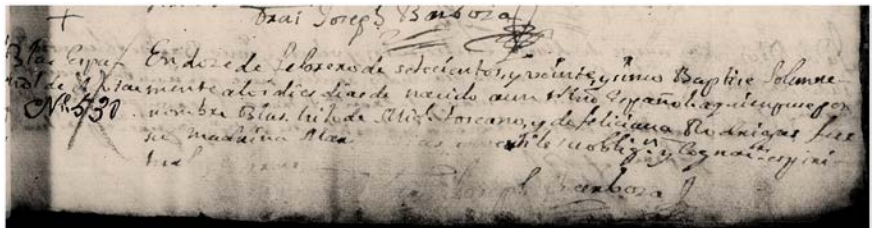 Frai Joseph Barboza
Blas Españ En doze de febrero de setecientos y veinte y sinco Baptise Solemne
mente a los dies dias de nacido a un Niño Español a quien puse por
Nº 530 nombre Blas hijo de Migl Toscano, y de feliciana Rodrigas fue
su Madrina Mar advertile su obligon y Cognaon espiri
tual
Joseph Barboza